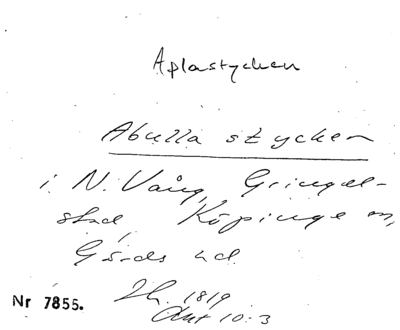 Aplastycken
Abulla stycken
i N. Vång, Gringel-
stad Köpinge sn,
Gärds hd
Nr 7855.
1819
Akt 10:3